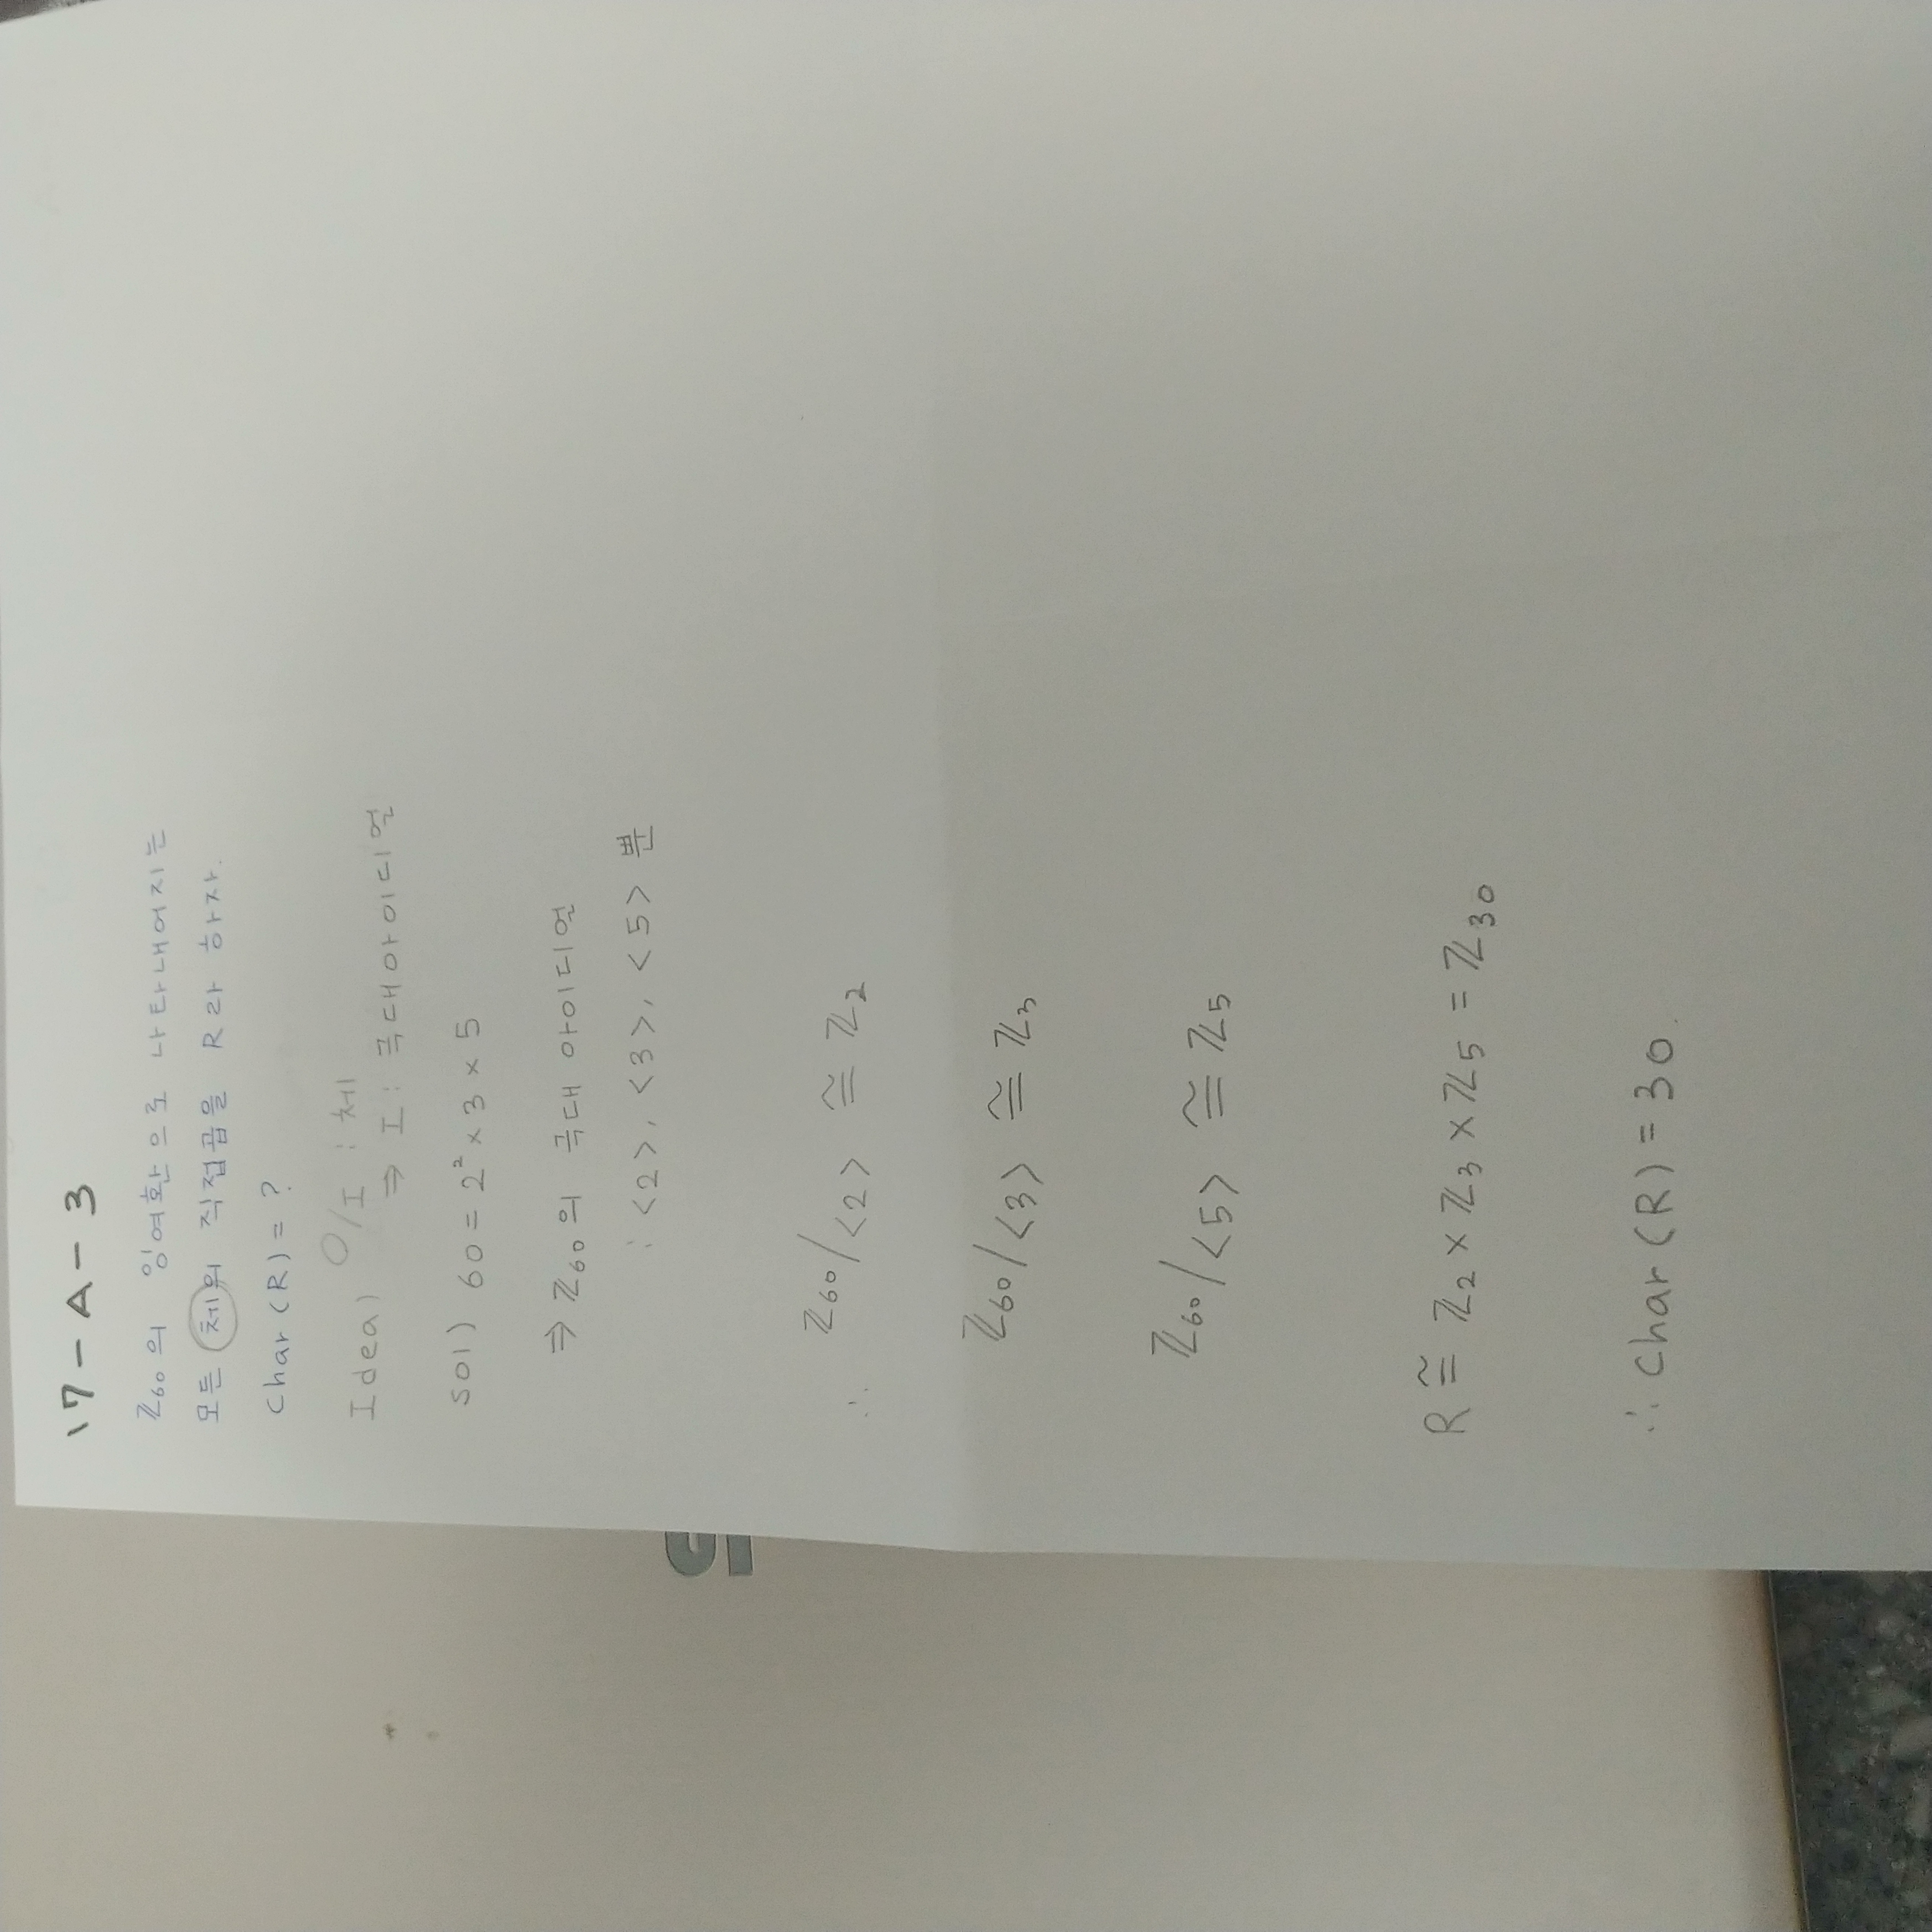 17-A-3
ℤ₆₀의 잉여환으로 나타내어지는
모든 체의 직접곱을 R라 하자.
Char(R) = ?
Idea) O/I : 체
⇒ I : 극대아이디얼
sol) 60 = 2² × 3 × 5
⇒ ℤ₆₀의 극대 아이디얼
: <2>, <3>, <5> 뿐
∴ ℤ₆₀/<2> ≅ ℤ₂
ℤ₆₀/<3> ≅ ℤ₃
ℤ₆₀/<5> ≅ ℤ₅
R ≅ ℤ₂ × ℤ₃ × ℤ₅ = ℤ₃₀
∴ Char(R) = 30.